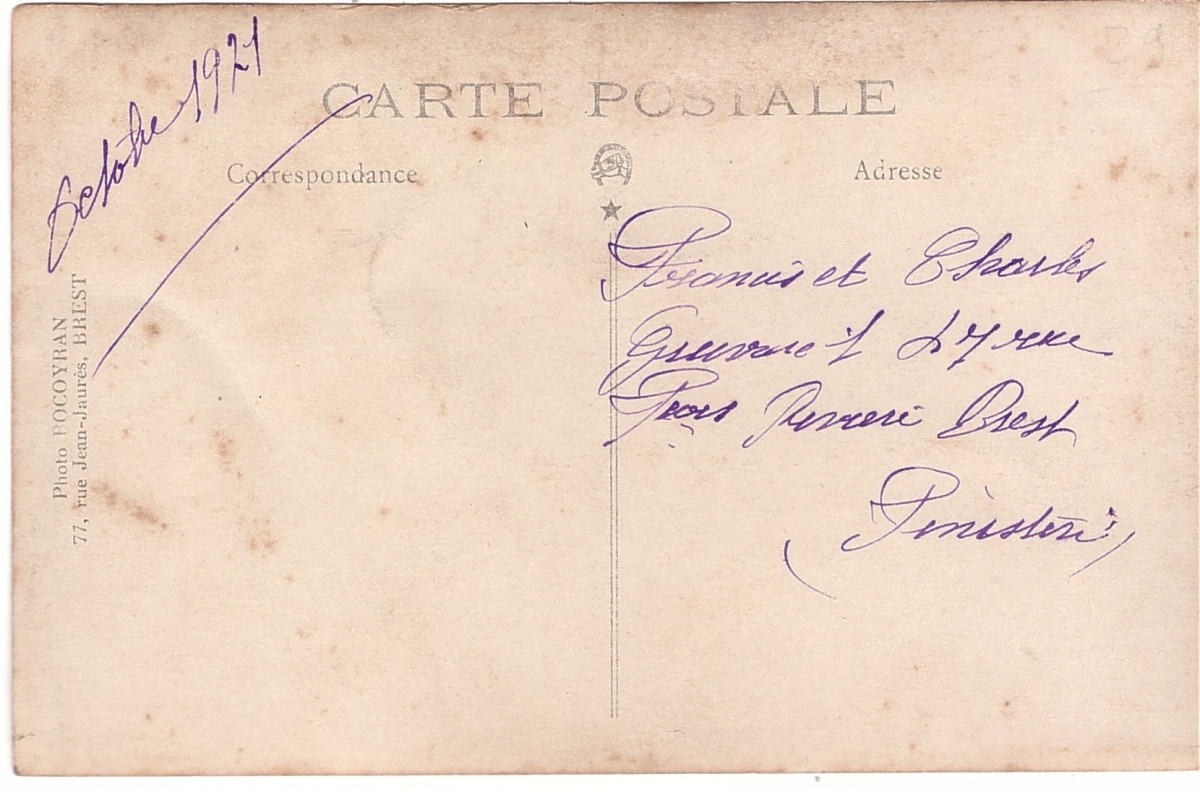 Octobre 1921
CARTE POSTALE
Correspondance
Adresse
Photo BOCOYRAN
77, rue Jean-Jaurès, BREST
Francis et Charles
rue
Brest
(Finistère)